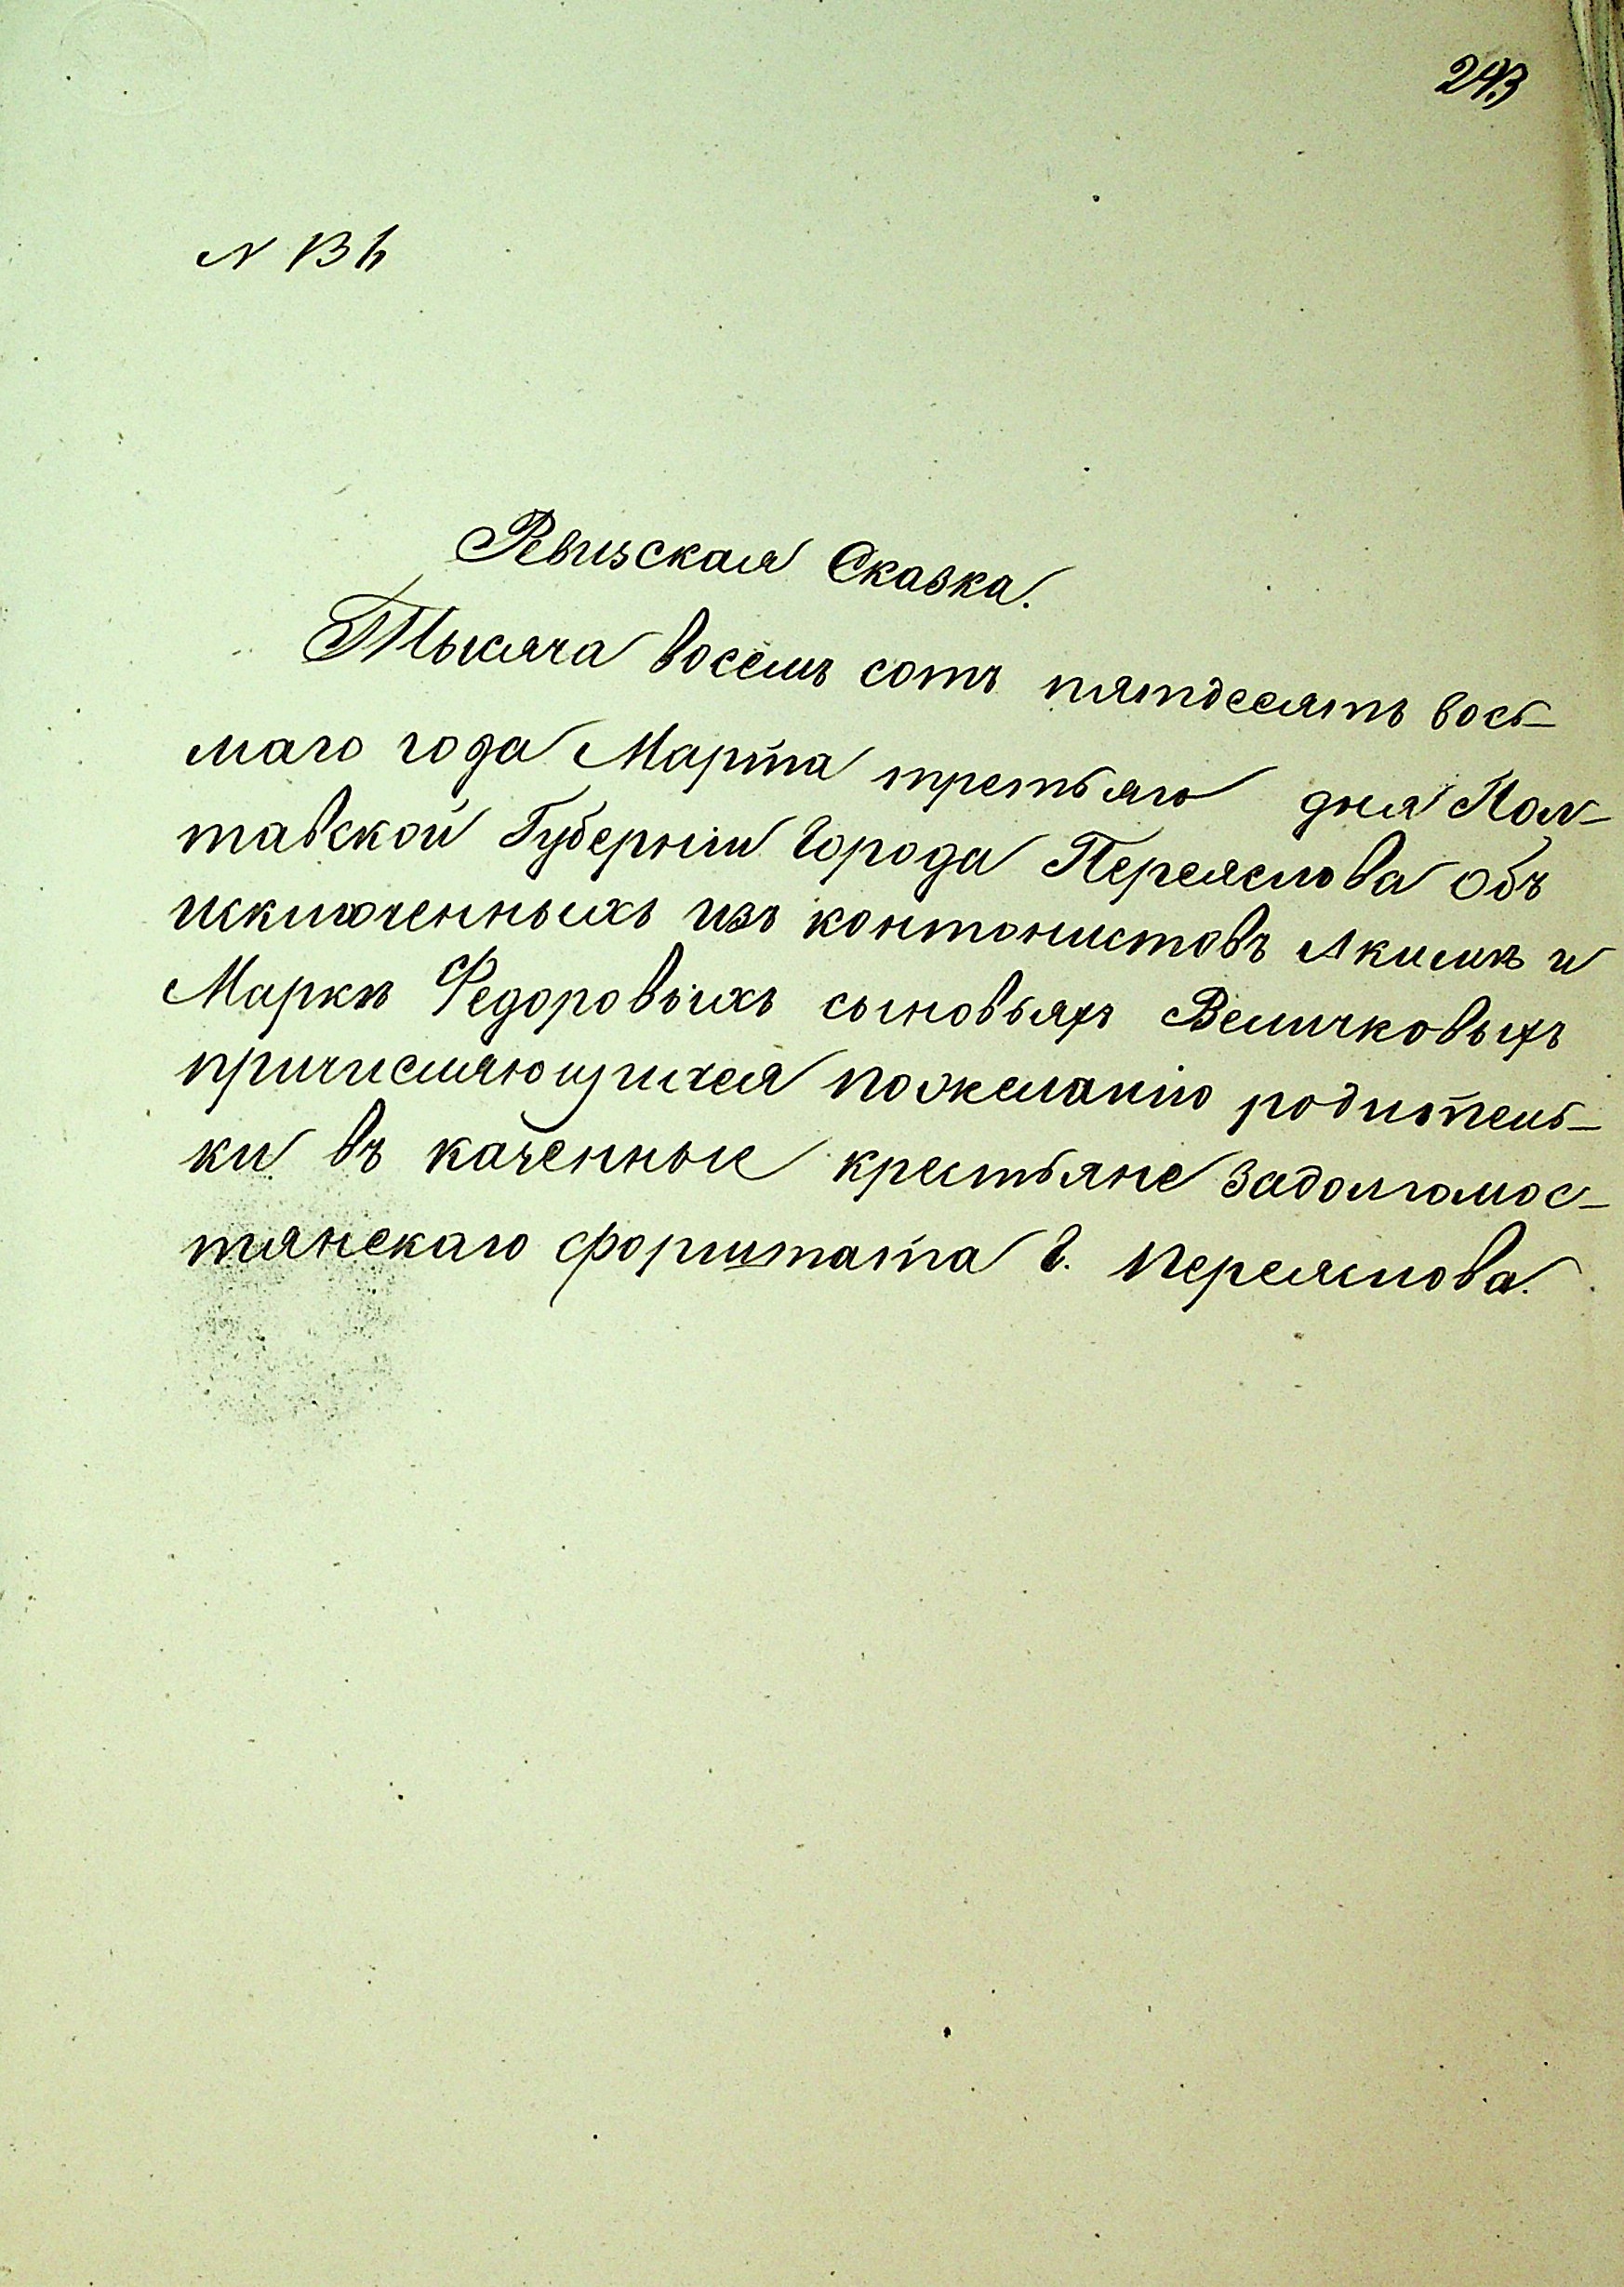 293
N 136
Ревизская Сказка.
Тысяча восемь сотъ пятдесятъ вось-
маго года Марта третьяго дня Пол-
тавской Губерніи Города Переяслова объ
исключенныхъ изъ контонистовъ Акимѣ и
Маркѣ Федоровыхъ сыновьяхъ Величковыхъ
причисляющихся пожеланію родитель-
ки въ каченные крестьяне Задолгомос-
тянскаго форштата Г. Переяслова.